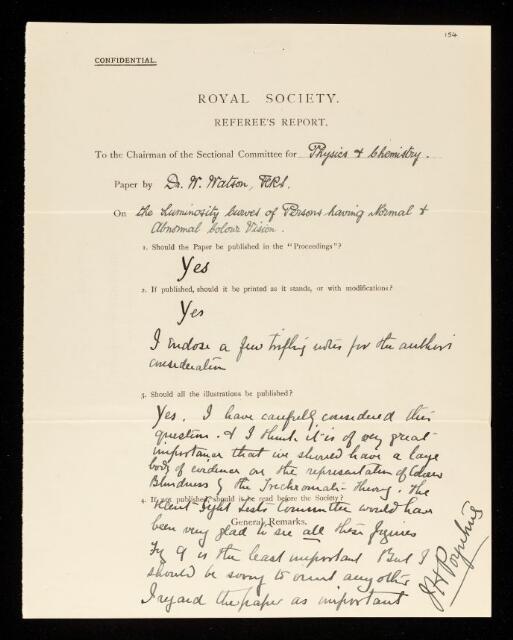 154
CONFIDENTIAL.
ROYAL SOCIETY.
REFEREE'S REPORT.
To the Chairman of the Sectional Committee for Physics & Chemistry.
Paper by Dr. W. Watson, F.R.S.
On the Luminosity Curves of Persons having Normal &
Abnormal Colour Vision.
1. Should the Paper be published in the "Proceedings"?
Yes
2. If published, should it be printed as it stands, or with modifications?
Yes
I enclose a few trifling notes for the author's
consideration
3. Should all the illustrations be published?
Yes. I have carefully considered this
question. & I think it is of very great
importance that we should have a large
body of evidence on the representation of Colour
Blindness by the Trichromatic theory. The
4. If not published, should it be read before the Society?
recent Sight Tests Committee would have
General Remarks.
been very glad to see all these figures
Fig 9 is the least important But I
should be sorry to omit any other
I regard the paper as important
J H Poynting